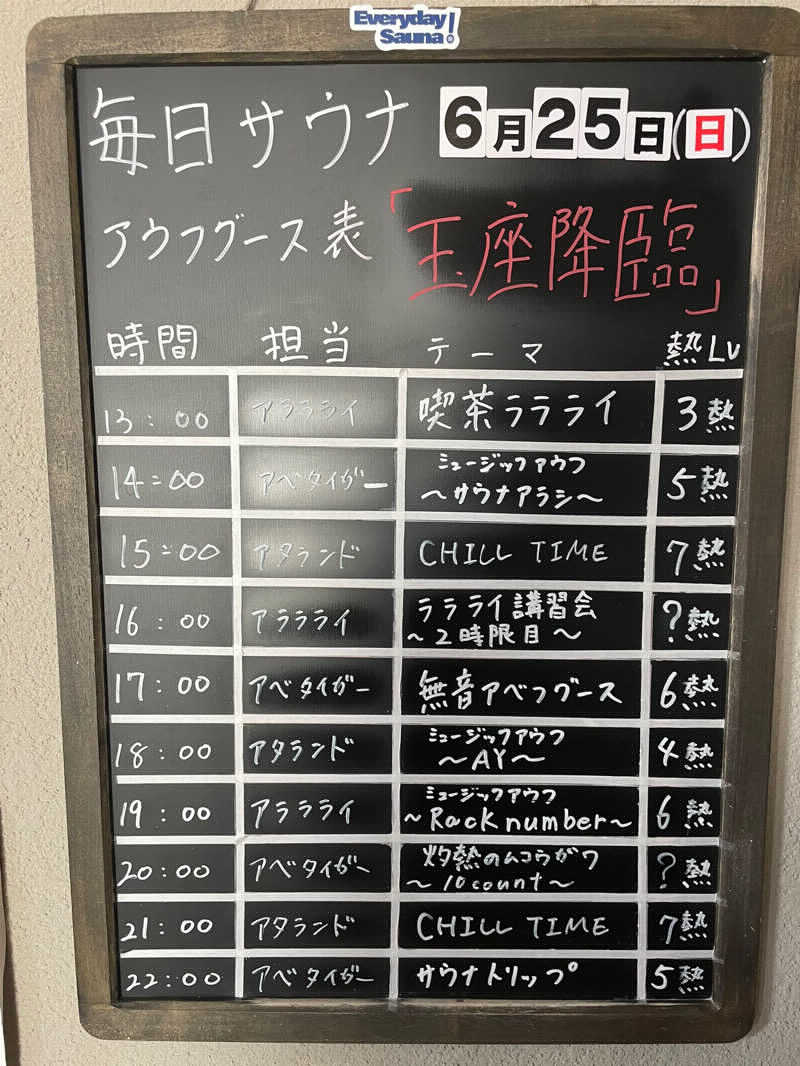 Everyday
Sauna!
毎日サウナ 6月25日(日)
アウフグース表「玉座降臨」
時間 担当 テーマ 熱Lv
13:00 アララライ 喫茶ラララライ 3熱
14:00 アベタイガー ミュージックアウフ
~サウナアラシ~ 5熱
15:00 アタランド CHILL TIME 7熱
16:00 アララライ ララライ講習会
~2時限目~ ?熱
17:00 アベタイガー 無音アベフグース 6熱
18:00 アタランド ミュージックアウフ
~AY~ 4熱
19:00 アララライ ミュージックアウフ
~Rack number~ 6熱
20:00 アベタイガー 灼熱のムコウガワ
~10count~ ?熱
21:00 アタランド CHILL TIME 7熱
22:00 アベタイガー サウナトリップ 5熱